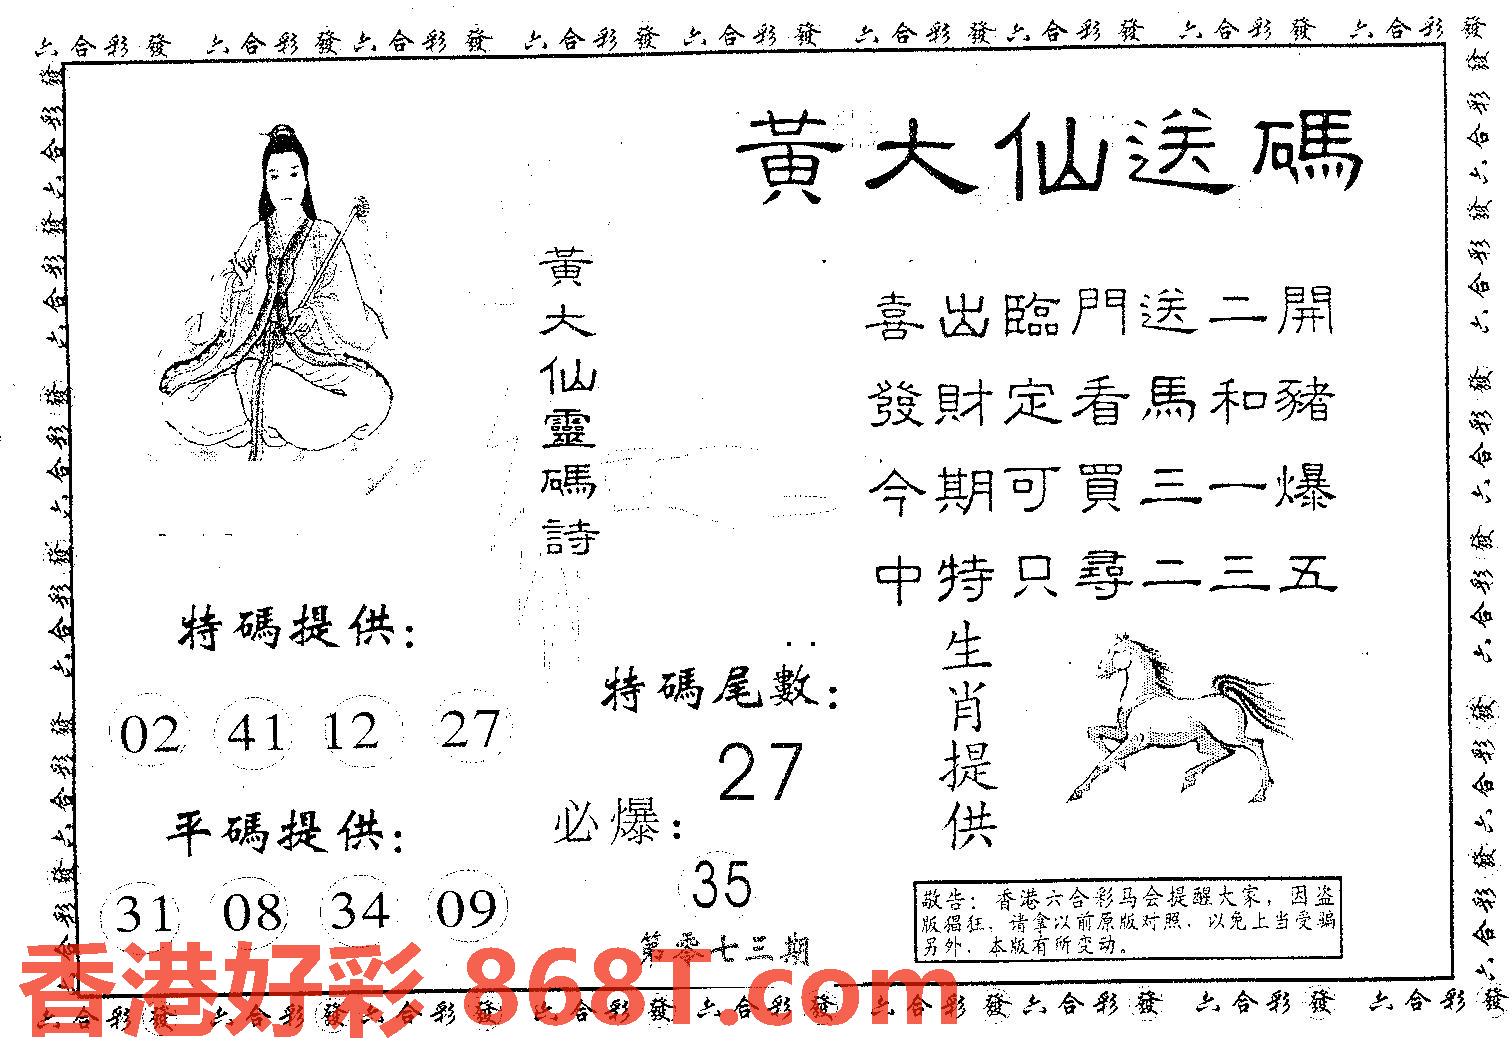 六合彩發 六合彩發六合彩發 六合彩發 六合彩發 六合彩發六合彩發 六合彩發 六合彩發
黃大仙送碼
黃大仙靈碼詩
喜出臨門送二開
發財定看馬和豬
今期可買三一爆
中特只尋二三五
特碼提供：
02 41 12 27
平碼提供：
31 08 34 09
特碼尾數：
27
必爆：
35
第零七三期
生肖提供
敬告：香港六合彩马会提醒大家，因盗
版猖狂，请拿以前原版对照，以免上当受骗
另外，本版有所变动。
香港好彩 868T.com
六合彩發 六合彩發六合彩發 六合彩發 六合彩發 六合彩發六合彩發 六合彩發 六合彩發